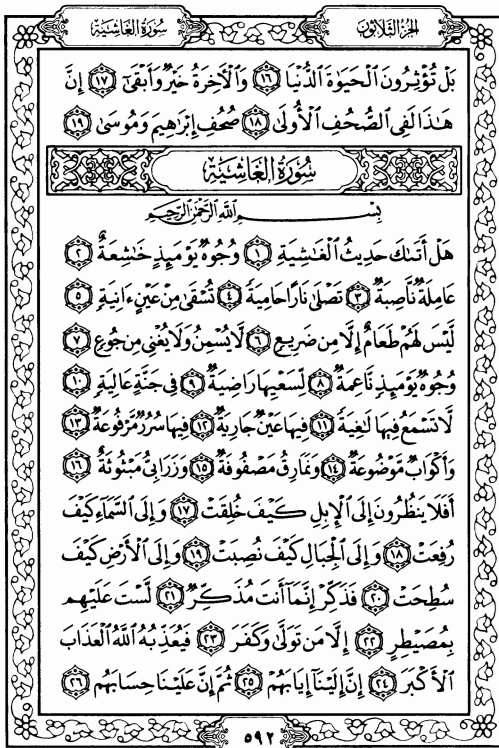 سُورَةُ الغَاشِيَةِ
الجُزْءُ الثَّلَاثُونَ
بَلْ تُؤْثِرُونَ ٱلْحَيَوٰةَ ٱلدُّنْيَا ١٦ وَٱلْأَخِرَةُ خَيْرٌ وَأَبْقَىٰٓ ١٧ إِنَّ
هَٰذَا لَفِى ٱلصُّحُفِ ٱلْأُولَىٰ ١٨ صُحُفِ إِبْرَٰهِيمَ وَمُوسَىٰ ١٩
سُورَةُ الغَاشِيَةِ
بِسْمِ ٱللَّهِ ٱلرَّحْمَٰنِ ٱلرَّحِيمِ
هَلْ أَتَىٰكَ حَدِيثُ ٱلْغَٰشِيَةِ ١ وُجُوهٌ يَوْمَئِذٍ خَٰشِعَةٌ ٢
عَامِلَةٌ نَّاصِبَةٌ ٣ تَصْلَىٰ نَارًا حَامِيَةً ٤ تُسْقَىٰ مِنْ عَيْنٍ ءَانِيَةٍ ٥
لَّيْسَ لَهُمْ طَعَامٌ إِلَّا مِن ضَرِيعٍ ٦ لَّا يُسْمِنُ وَلَا يُغْنِى مِن جُوعٍ ٧
وُجُوهٌ يَوْمَئِذٍ نَّاعِمَةٌ ٨ لِّسَعْيِهَا رَاضِيَةٌ ٩ فِى جَنَّةٍ عَالِيَةٍ ١٠
لَّا تَسْمَعُ فِيهَا لَٰغِيَةً ١١ فِيهَا عَيْنٌ جَارِيَةٌ ١٢ فِيهَا سُرُرٌ مَّرْفُوعَةٌ ١٣
وَأَكْوَابٌ مَّوْضُوعَةٌ ١٤ وَنَمَارِقُ مَصْفُوفَةٌ ١٥ وَزَرَابِىُّ مَبْثُوثَةٌ ١٦
أَفَلَا يَنظُرُونَ إِلَى ٱلْإِبِلِ كَيْفَ خُلِقَتْ ١٧ وَإِلَى ٱلسَّمَآءِ كَيْفَ
رُفِعَتْ ١٨ وَإِلَى ٱلْجِبَالِ كَيْفَ نُصِبَتْ ١٩ وَإِلَى ٱلْأَرْضِ كَيْفَ
سُطِحَتْ ٢٠ فَذَكِّرْ إِنَّمَآ أَنتَ مُذَكِّرٌ ٢١ لَّسْتَ عَلَيْهِم
بِمُصَيْطِرٍ ٢٢ إِلَّا مَن تَوَلَّىٰ وَكَفَرَ ٢٣ فَيُعَذِّبُهُ ٱللَّهُ ٱلْعَذَابَ
ٱلْأَكْبَرَ ٢٤ إِنَّ إِلَيْنَآ إِيَابَهُمْ ٢٥ ثُمَّ إِنَّ عَلَيْنَا حِسَابَهُم ٢٦
٥٩٢